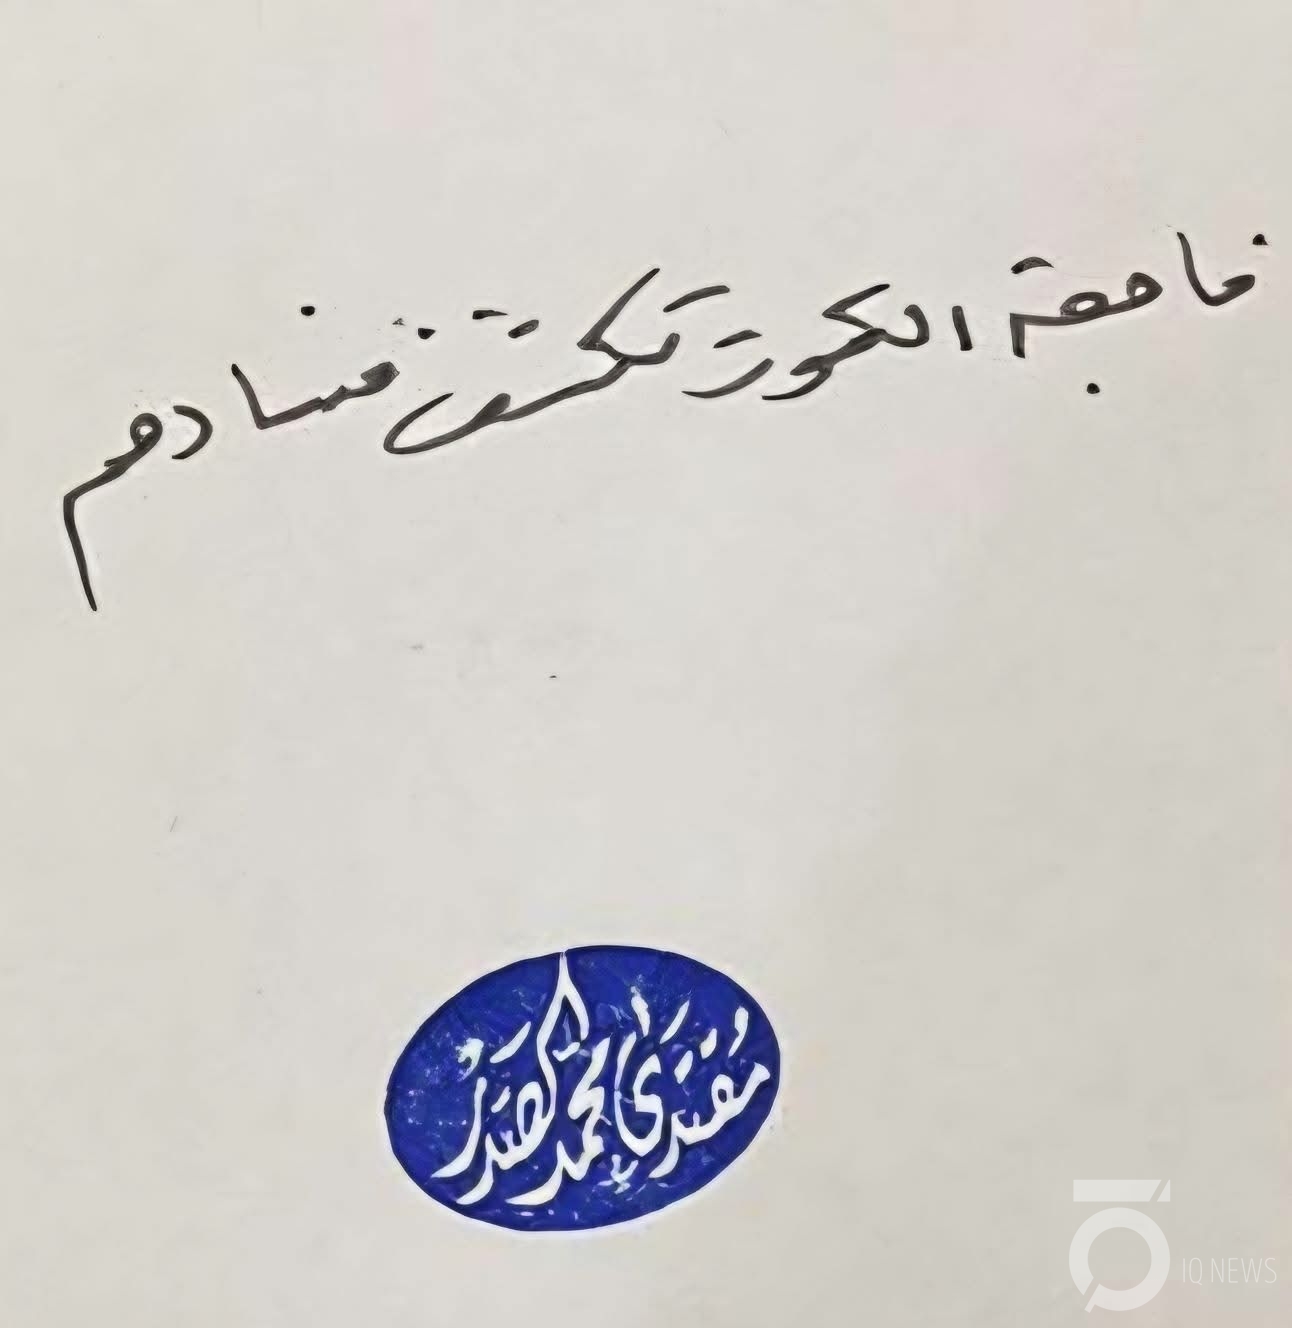 فاجعة الكوت تكشف فسادهم
مقتدى محمد الصدر
IQ NEWS